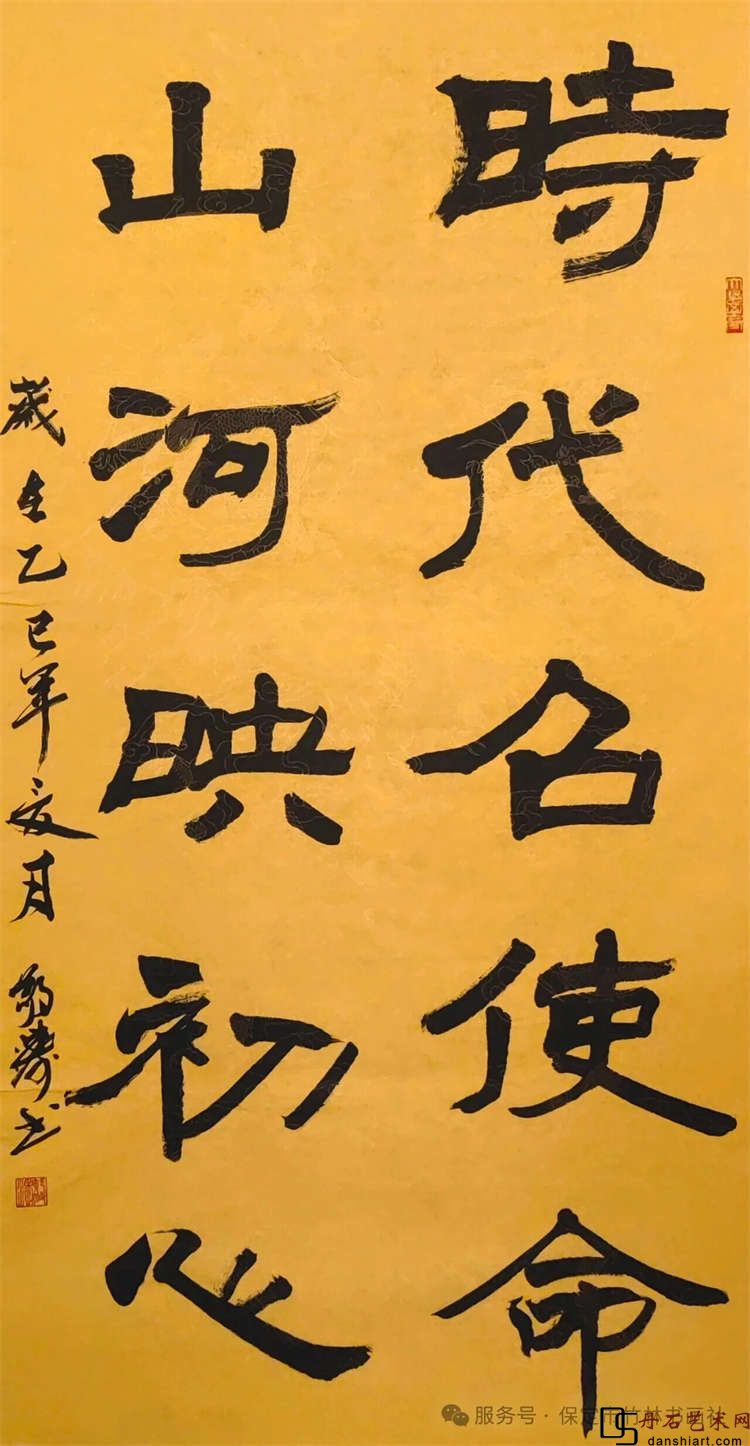 時代召使命
山河映初心
歲在乙巳年夏月
书
服务号·保定市竹林书画社
DS 丹石艺术网
danshiart.com